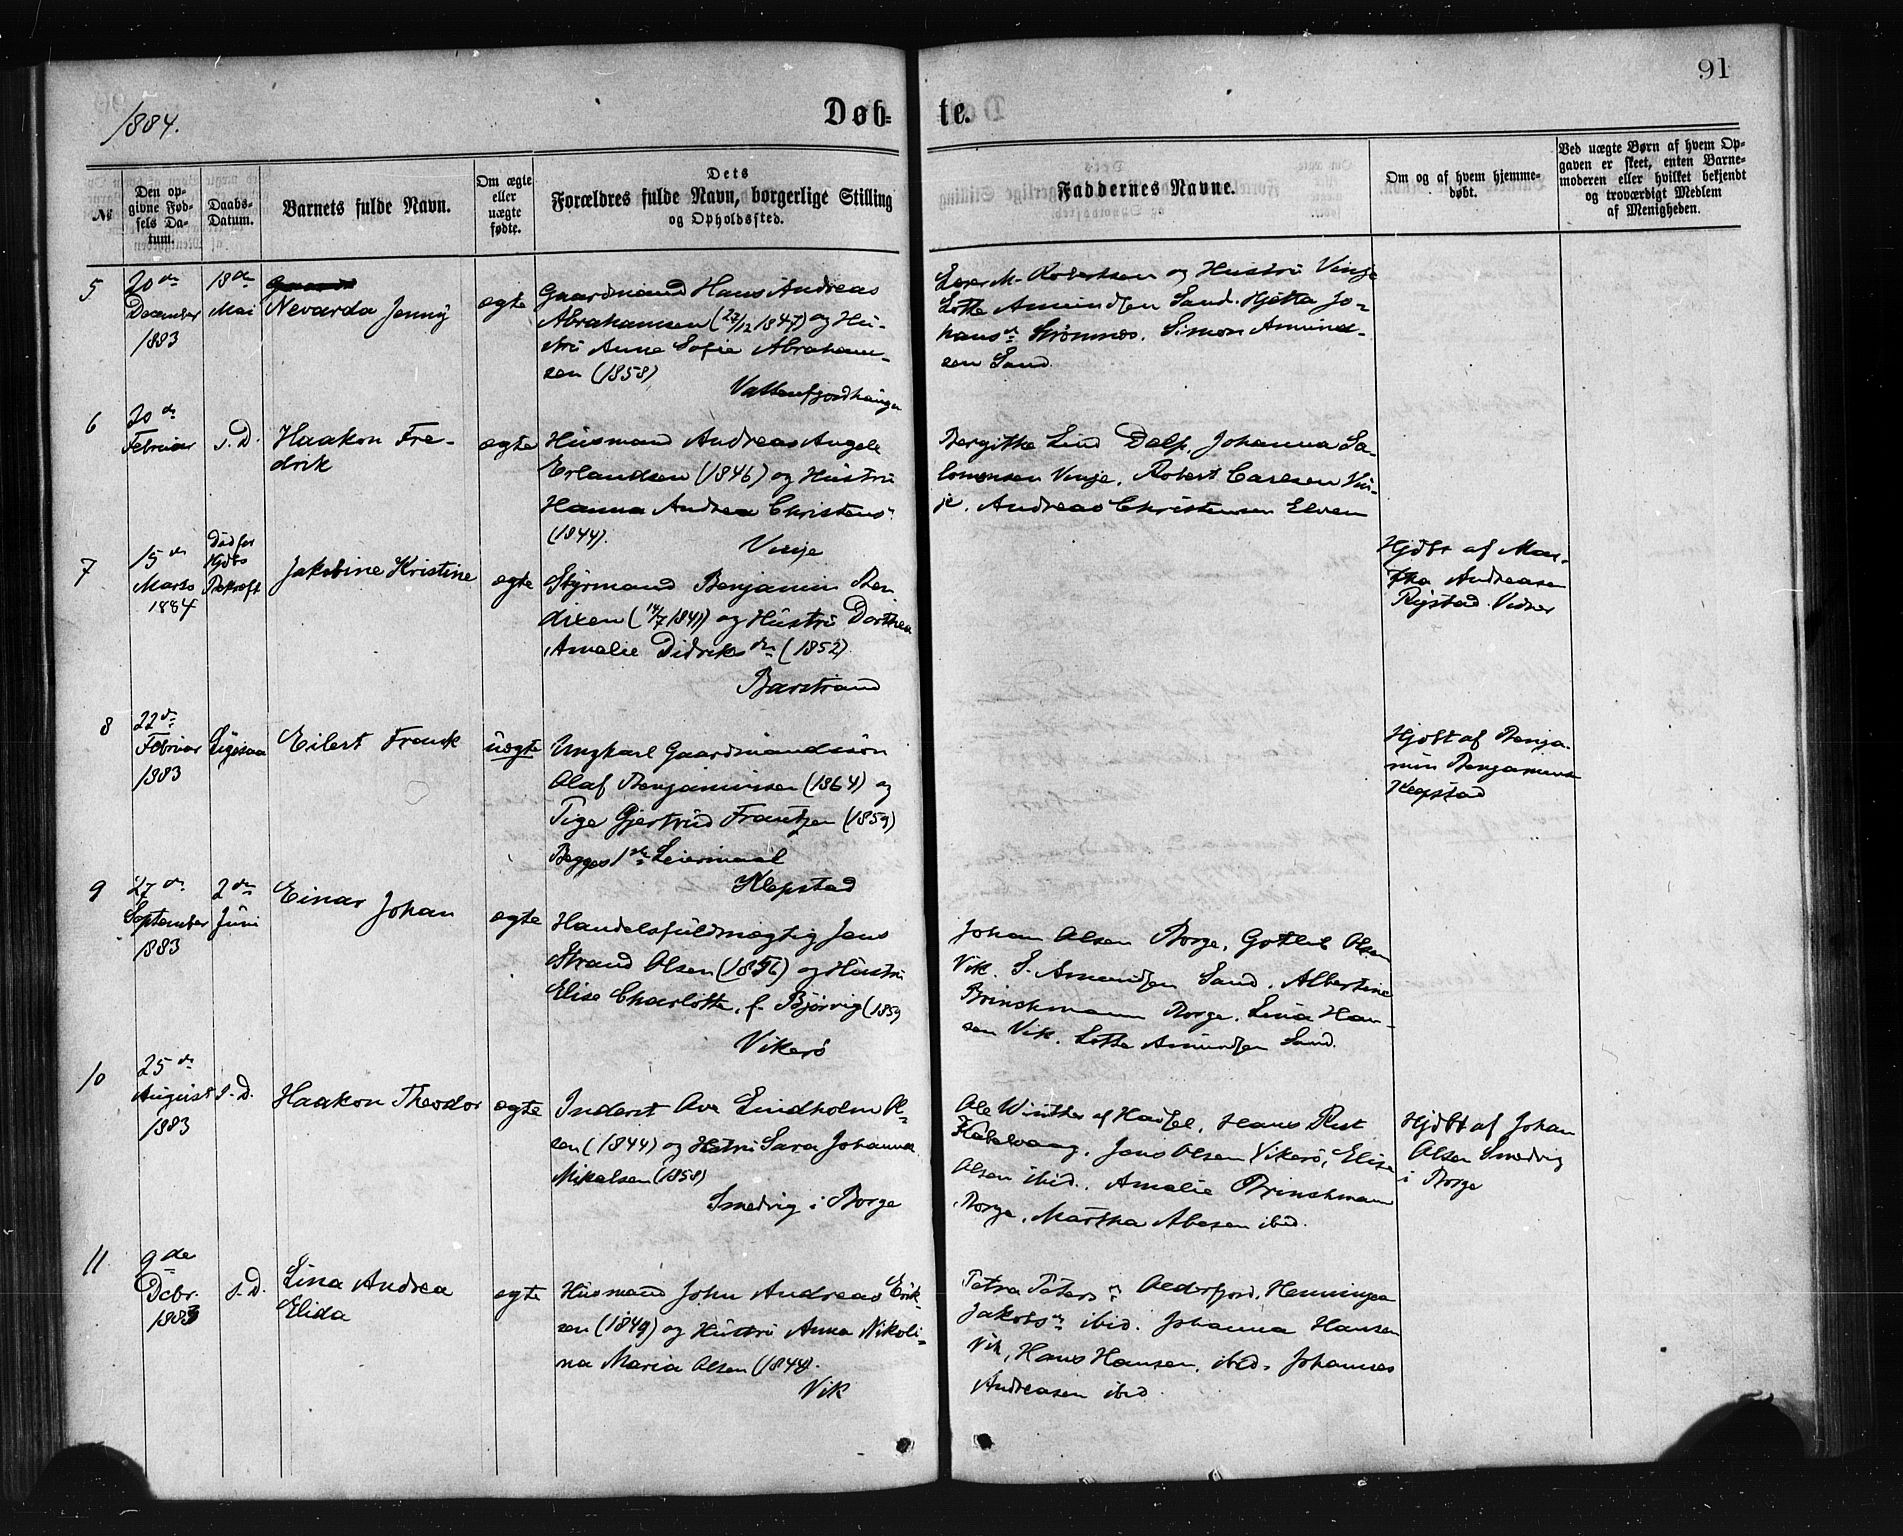 91
1884.
Døb-
te.
№
Den op-
givne Fød-
sels Da-
tum.
Daabs-
Datum.
Barnets fulde Navn.
Om ægte
eller
uægte
fødte.
Dets
Forældres fulde Navn, borgerlige Stilling
og Opholdssted.
Faddernes Navne.
Om og af hvem hjemme-
døbt.
Ved uægte Børn af hvem Op-
gaven er skeet, enten Barne-
moderen eller hvilket bekjendt
og troværdigt Medlem
af Menigheden.
5
20de
December
1883
18de
Mai
Nevarda Jenny
ægte
Gaardmand Hans Andreas
Abrahamsen (27/12 1847) og Hu-
stru Anna Sofie Abraham-
sen (1858)
M. Robertsen og Hustru Vinje
Lotte Amundsen Sand. Jo-
hansdr Strømnes. Simon Amund-
sen Sand.
6
20de
Februar
s. D.
Haakon Fre-
drik
ægte
Husmand Andreas Angell
Erlandsen (1846) og Hustru
Hanna Andrea Christens-
(1844).
Vinje
Bergitte Lind Dalp, Johanna Sa-
lomonsen Vinje, Robert Carlsen Vin-
je, Andreas Christensen Elven
7
15de
Marts
1884
Død før
Hjdbs
Bekræft
Jakobine Kristine
ægte
Styrmand Benjamin Ben
dixen (14/7 1841) og Hustru Dorthea
Amalie Didriksdr (1852).
Barstrand
Hjdbt af Mar-
tha Andreasen
Rystad. Vidner
8
22de
Februar
1883
Ligesaa
Eilert Frank
uægte
Ungkarl Gaardmandssøn
Olaf Benjaminsen (1864) og
Pige Gjertrud Frantzen (1859)
Begges 1ste Leiermaal
Klepstad
Hjdbt af Benja-
min Benjaminsen
Klepstad
9
27de
September
1883
2den
Juni
Einar Johan
ægte
Handelsfuldmægtig Jens
Strand Olsen (1856) og Hustru
Elise Charlotte, f. Bjørvig (1859
Vikerø
Johan Olsen Borge, Gotlieb Olsen
Vik. S. Amundsen Sand, Albertine
Brinchmann Borge. Lina Han-
sen Vik. Lotte Amundsen Sand.
10
25de
August
1883
s. D.
Haakon Theodor
ægte
Inderst Ove Lindholm Ol-
sen (1844) og Hustru Sara Johanna
Mikalsen (1858)
Smedvig i Borge
Ole Winther af Hadsel, Hans Rist
Kabelvaag, Jens Olsen Vikerø, Elise
Olsen ibid., Amalie Brinchmann
Borge, Martha Abesen ibid.
Hjdbt af Johan
Olsen Smedvig
i Borge
11
9de
Decbr.
1883
s. D.
Lina Andrea
Elida
ægte
Husmand John Andreas Erik-
sen (1849) og Hustru Anna Nikoli-
na Maria Olsen (1844).
Vik
Petra Petersdr Olderfjord, Henningea
Jakobsdr ibid. Johanna Hansen
Vik, Hans Hansen, ibid, Johannes
Andreasen ibid.